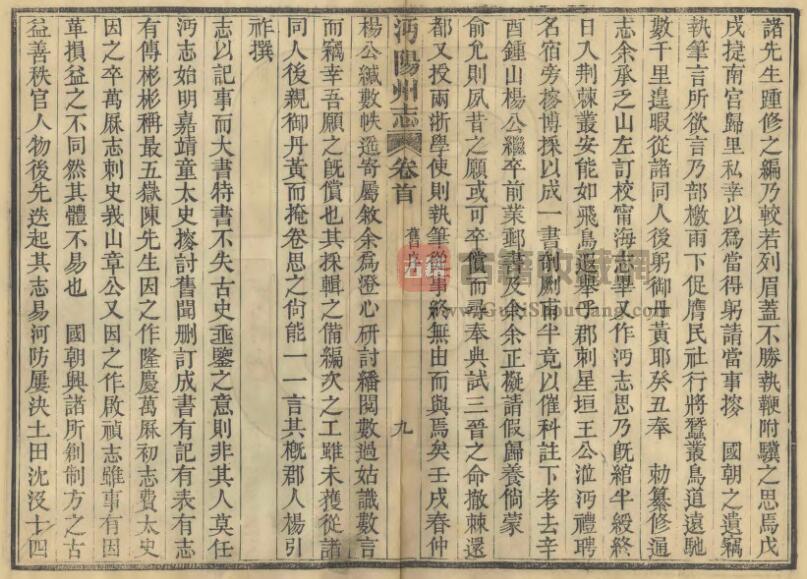 諸先生踵修之編乃較若列眉蓋不勝執鞭附驥之思焉戊
戌捷南宮歸里私幸以爲當得躬請當事搜 國朝之遺竊
執筆言所欲言乃部檄雨下促膺民社行將蠶叢鳥道遠馳
數千里遑暇從諸同人後躬御丹黃耶癸丑奉 勅纂修通
志余承乏山左訂校甯海志畢又作沔志思乃旣綰半綬終
日入荆棘叢安能如飛鳥遐舉乎郡刺星垣王公涖沔禮聘
名宿旁搜博採以成一書剞劂甫半竟以催科註下考去辛
酉鍾山楊公繼卒前業郵書及余余正擬請假歸養倘蒙
俞允則夙昔之願或可卒償而尋奉典試三晉之命撤棘還
都又投兩浙學使則執筆從事終無由而與焉矣壬戌春仲
沔陽州志 卷首 舊序 九
楊公緘數帙遙寄屬敘余爲澄心硏討繙閱數過姑識數言
而竊幸吾願之旣償也其採輯之備編次之工雖未獲從諸
同人後親御丹黃而掩卷思之尙能一一言其槪郡人楊引
祚撰
志以記事而大書特書不失古史垂鑒之意則非其人莫任
沔志始明嘉靖童太史搜討舊聞删訂成書有記有表有志
有傳彬彬稱最五嶽陳先生因之作隆慶萬厤初志費太史
因之卒萬厤志刺史峩山章公又因之作啟禎志雖事有因
革損益之不同然其體不易也 國朝興諸所剏制方之古
益善秩官人物後先迭起其志易河防屢決土田沈沒十四